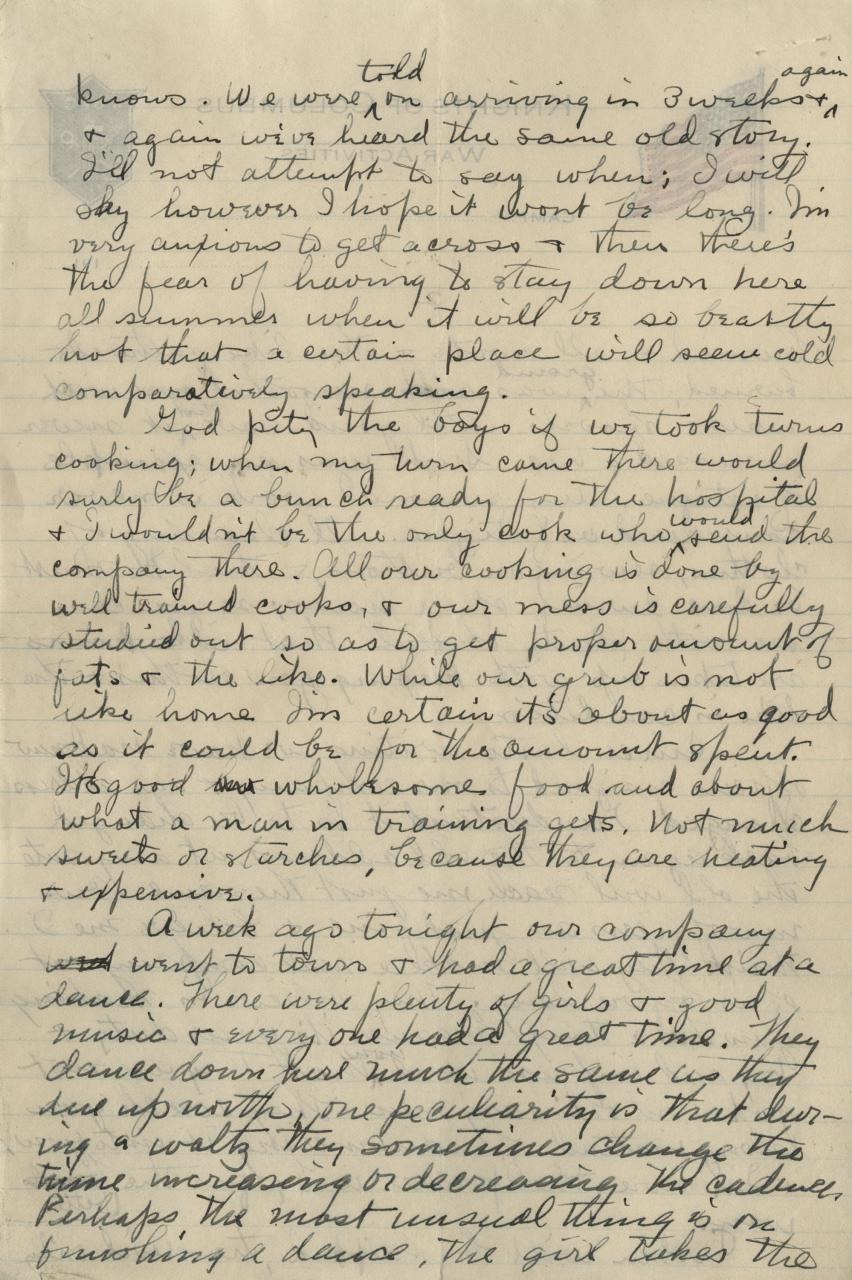 knows. We were told on arriving in 3 weeks & again
& again we've heard the same old story.
I'll not attempt to say when; I will
say however I hope it wont be long. I'm
very anxious to get across & then there's
the fear of having to stay down here
all summer when it will be so beastly
hot that a certain place will seem cold
comparatively speaking.
God pity the boys if we took turns
cooking; when my turn came there would
surly be a bunch ready for the hospital
& I wouldn't be the only cook who would send the
company there. All our cooking is done by
well trained cooks, & our mess is carefully
studied out so as to get proper amount of
fats & the like. While our grub is not
like home I'm certain it's about as good
as it could be for the amount spent.
It's good wholesome food and about
what a man in training gets. Not much
sweets or starches, because they are heating
& expensive.
A week ago tonight our company
went to town & had a great time at a
dance. There were plenty of girls & good
music & every one had a great time. They
dance down here much the same as they
due up north, one peculiarity is that dur-
ing a waltz they sometimes change the
time increasing or decreasing the cadence.
Perhaps the most unusual thing is on
finishing a dance, the girl takes the